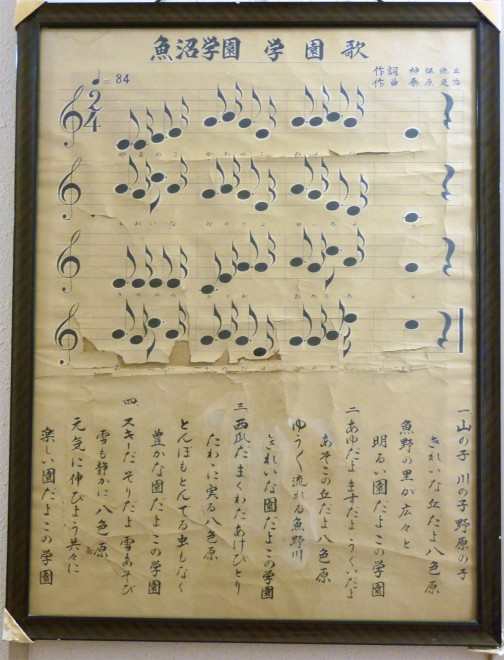 魚沼学園 学園歌
♩=84
作詞
作曲
2
4
一 山の子 川の子 野原の子
きれいな丘だよ八色原
魚野の里が広々と
明るい園だよこの学園
二 あゆだよ ますだよ うぐいだよ
あそこの丘だよ八色原
ゆうゆう流れる魚野川
きれいな園だよこの学園
三 西瓜だ まくわだ あけびとり
たわゝに実る八色原
とんぼもとんでる虫もなく
豊かな園だよこの学園
四 スキーだ そりだよ 雪あそび
雪も静かに八色原
元気に伸びよう共々に
楽しい園だよこの学園